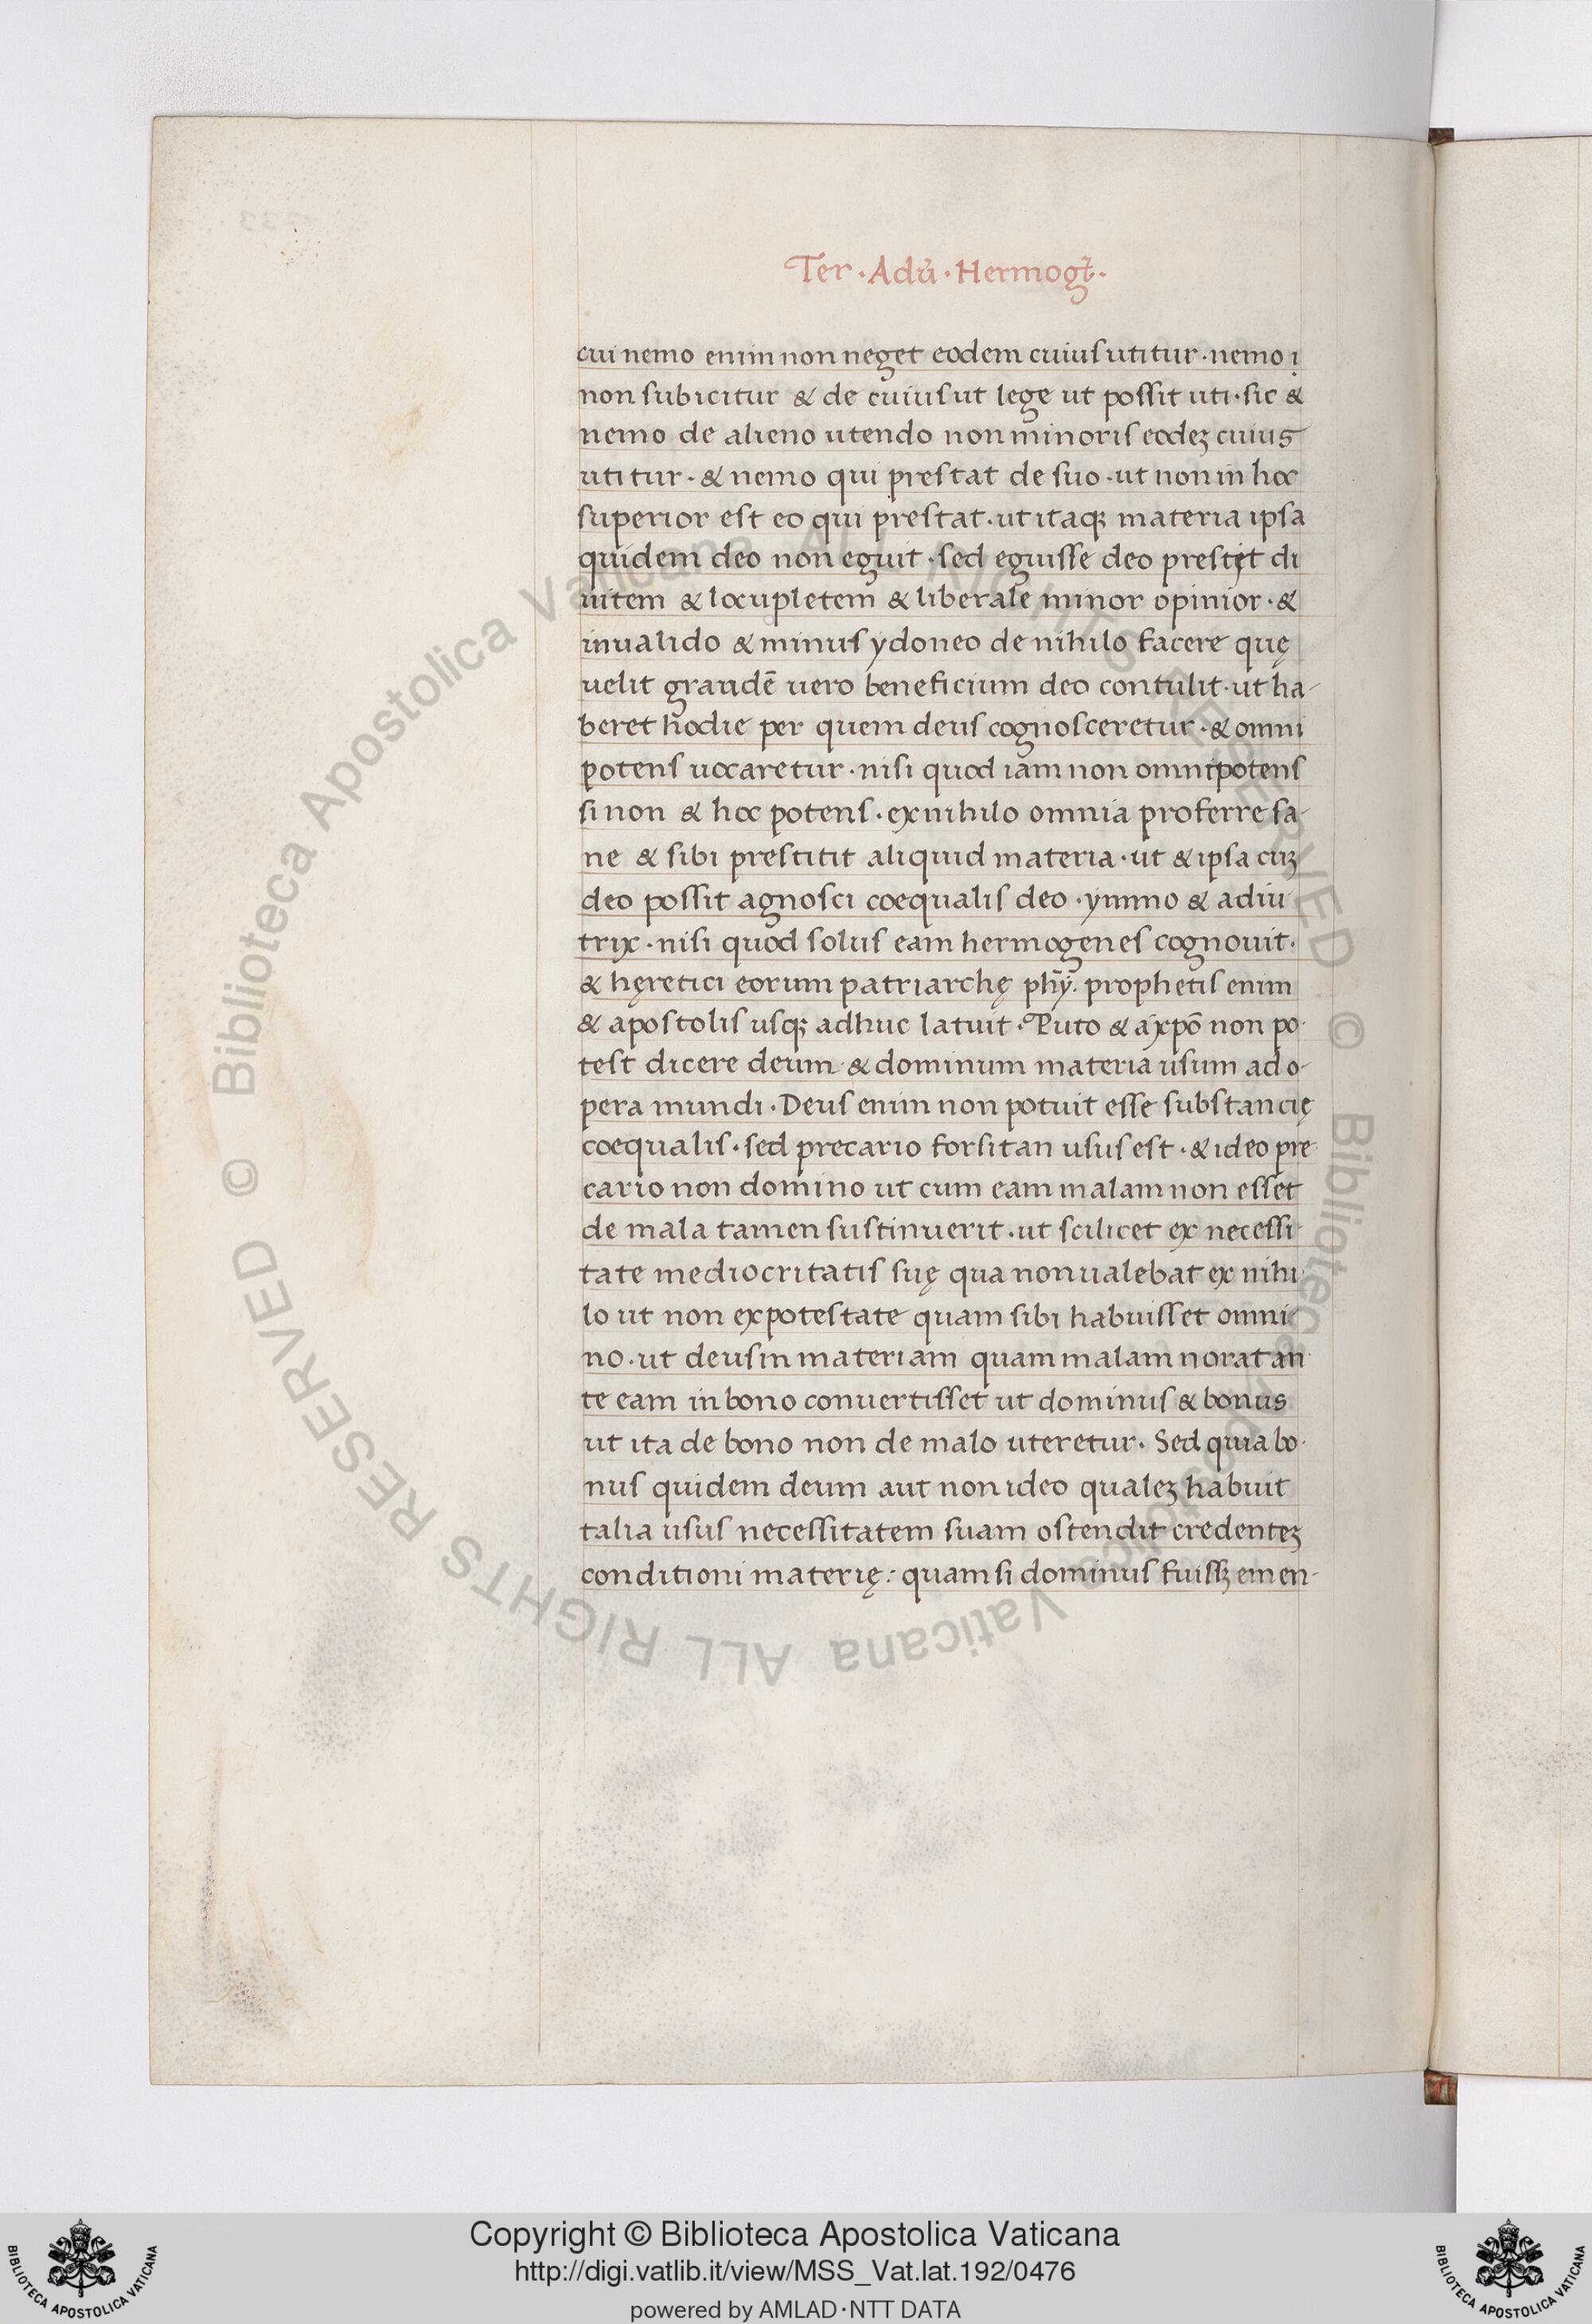 Ter · Adū · Hermogt̄ ·
cui nemo enim non neget eodem cuius utitur · nemo ị
non subicitur & de cuius ut lege ut possit uti · sic &
nemo de alieno utendo non minoris eodeꝫ cuius
utitur · & nemo qui prestat de suo · ut non in hoc
superior est eo qui prestat · ut itaqꝫ materia ipsa
quidem deo non eguit · sed eguisse deo prestẹt di
uitem & locupletem & liberale minor opinior · &
inualido & minus ydoneo de nihilo facere quę
uelit grandē uero beneficium deo contulit · ut ha-
beret hodie per quem deus cognosceretur · & omni
potens uocaretur · nisi quod iam non omnipotens
si non & hoc potens · ex nihilo omnia proferre sa-
ne & sibi prestitit aliquid materia · ut & ipsa cuꝫ
deo possit agnosci coequalis deo · ymmo & adiu
trix · nisi quod solus eam hermogenes cognouit ·
& hęretici eorum patriarchę phȳ · prophetis enim
& apostolis usqꝫ adhuc latuit · Puto & a xpō non po-
test dicere deum & dominum materia usum ad o-
pera mundi · Deus enim non potuit esse substancię
coequalis · sed precario forsitan usus est · & ideo pre
cario non domino ut cum eam malam non esset
de mala tamen sustinuerit · ut scilicet ex necessi-
tate mediocritatis suę qua non ualebat ex nihi-
lo ut non ex potestate quam sibi habuisset omni
no · ut deus in materiam quam malam norat an
te eam in bono conuertisset ut dominus & bonus
ut ita de bono non de malo uteretur · Sed quia bo-
nus quidem deum aut non ideo qualeꝫ habuit
talia usus necessitatem suam ostendit credenteꝫ
conditioni materię : quam si dominus fuissꝫ emen-
© Biblioteca Apostolica Vaticana ALL RIGHTS RESERVED © Biblioteca Apostolica Vaticana ALL RIGHTS RESERVED
Copyright © Biblioteca Apostolica Vaticana
http://digi.vatlib.it/view/MSS_Vat.lat.192/0476
powered by AMLAD·NTT DATA
BIBLIOTECA APOSTOLICA VATICANA
BIBLIOTECA APOSTOLICA VATICANA